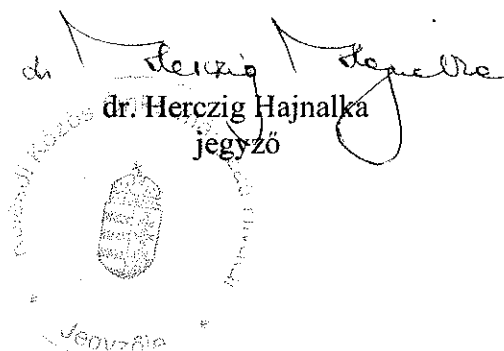 dr Herczig Hajnalka
dr. Herczig Hajnalka
jegyző
Közös
Jegyzője